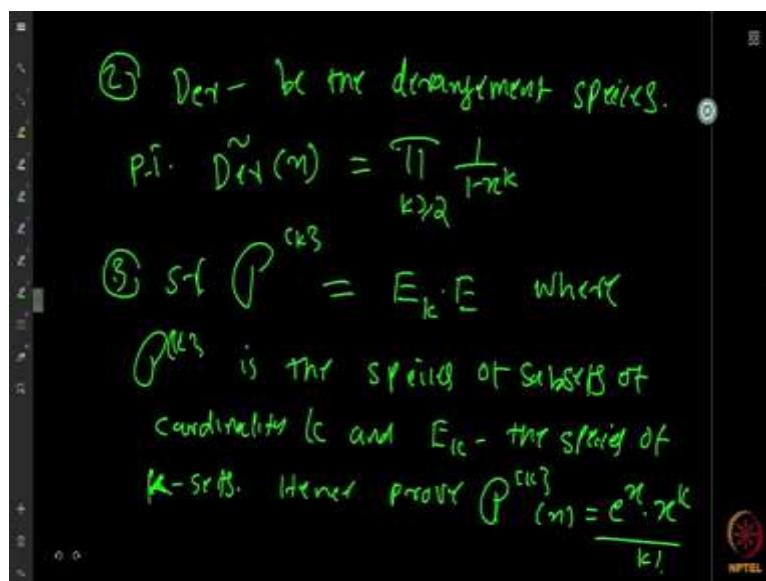 ② Der - be the derangement species.
P.T. D̃er(x) = ∏_{k≥2} 1/(1-x^k)
③ S.T. 𝒫^{[k]} = E_k · E where
𝒫^{[k]} is the species of subsets of
cardinality k and E_k - the species of
k-sets. Hence prove 𝒫^{[k]}(x) = e^x · x^k / k!
NPTEL